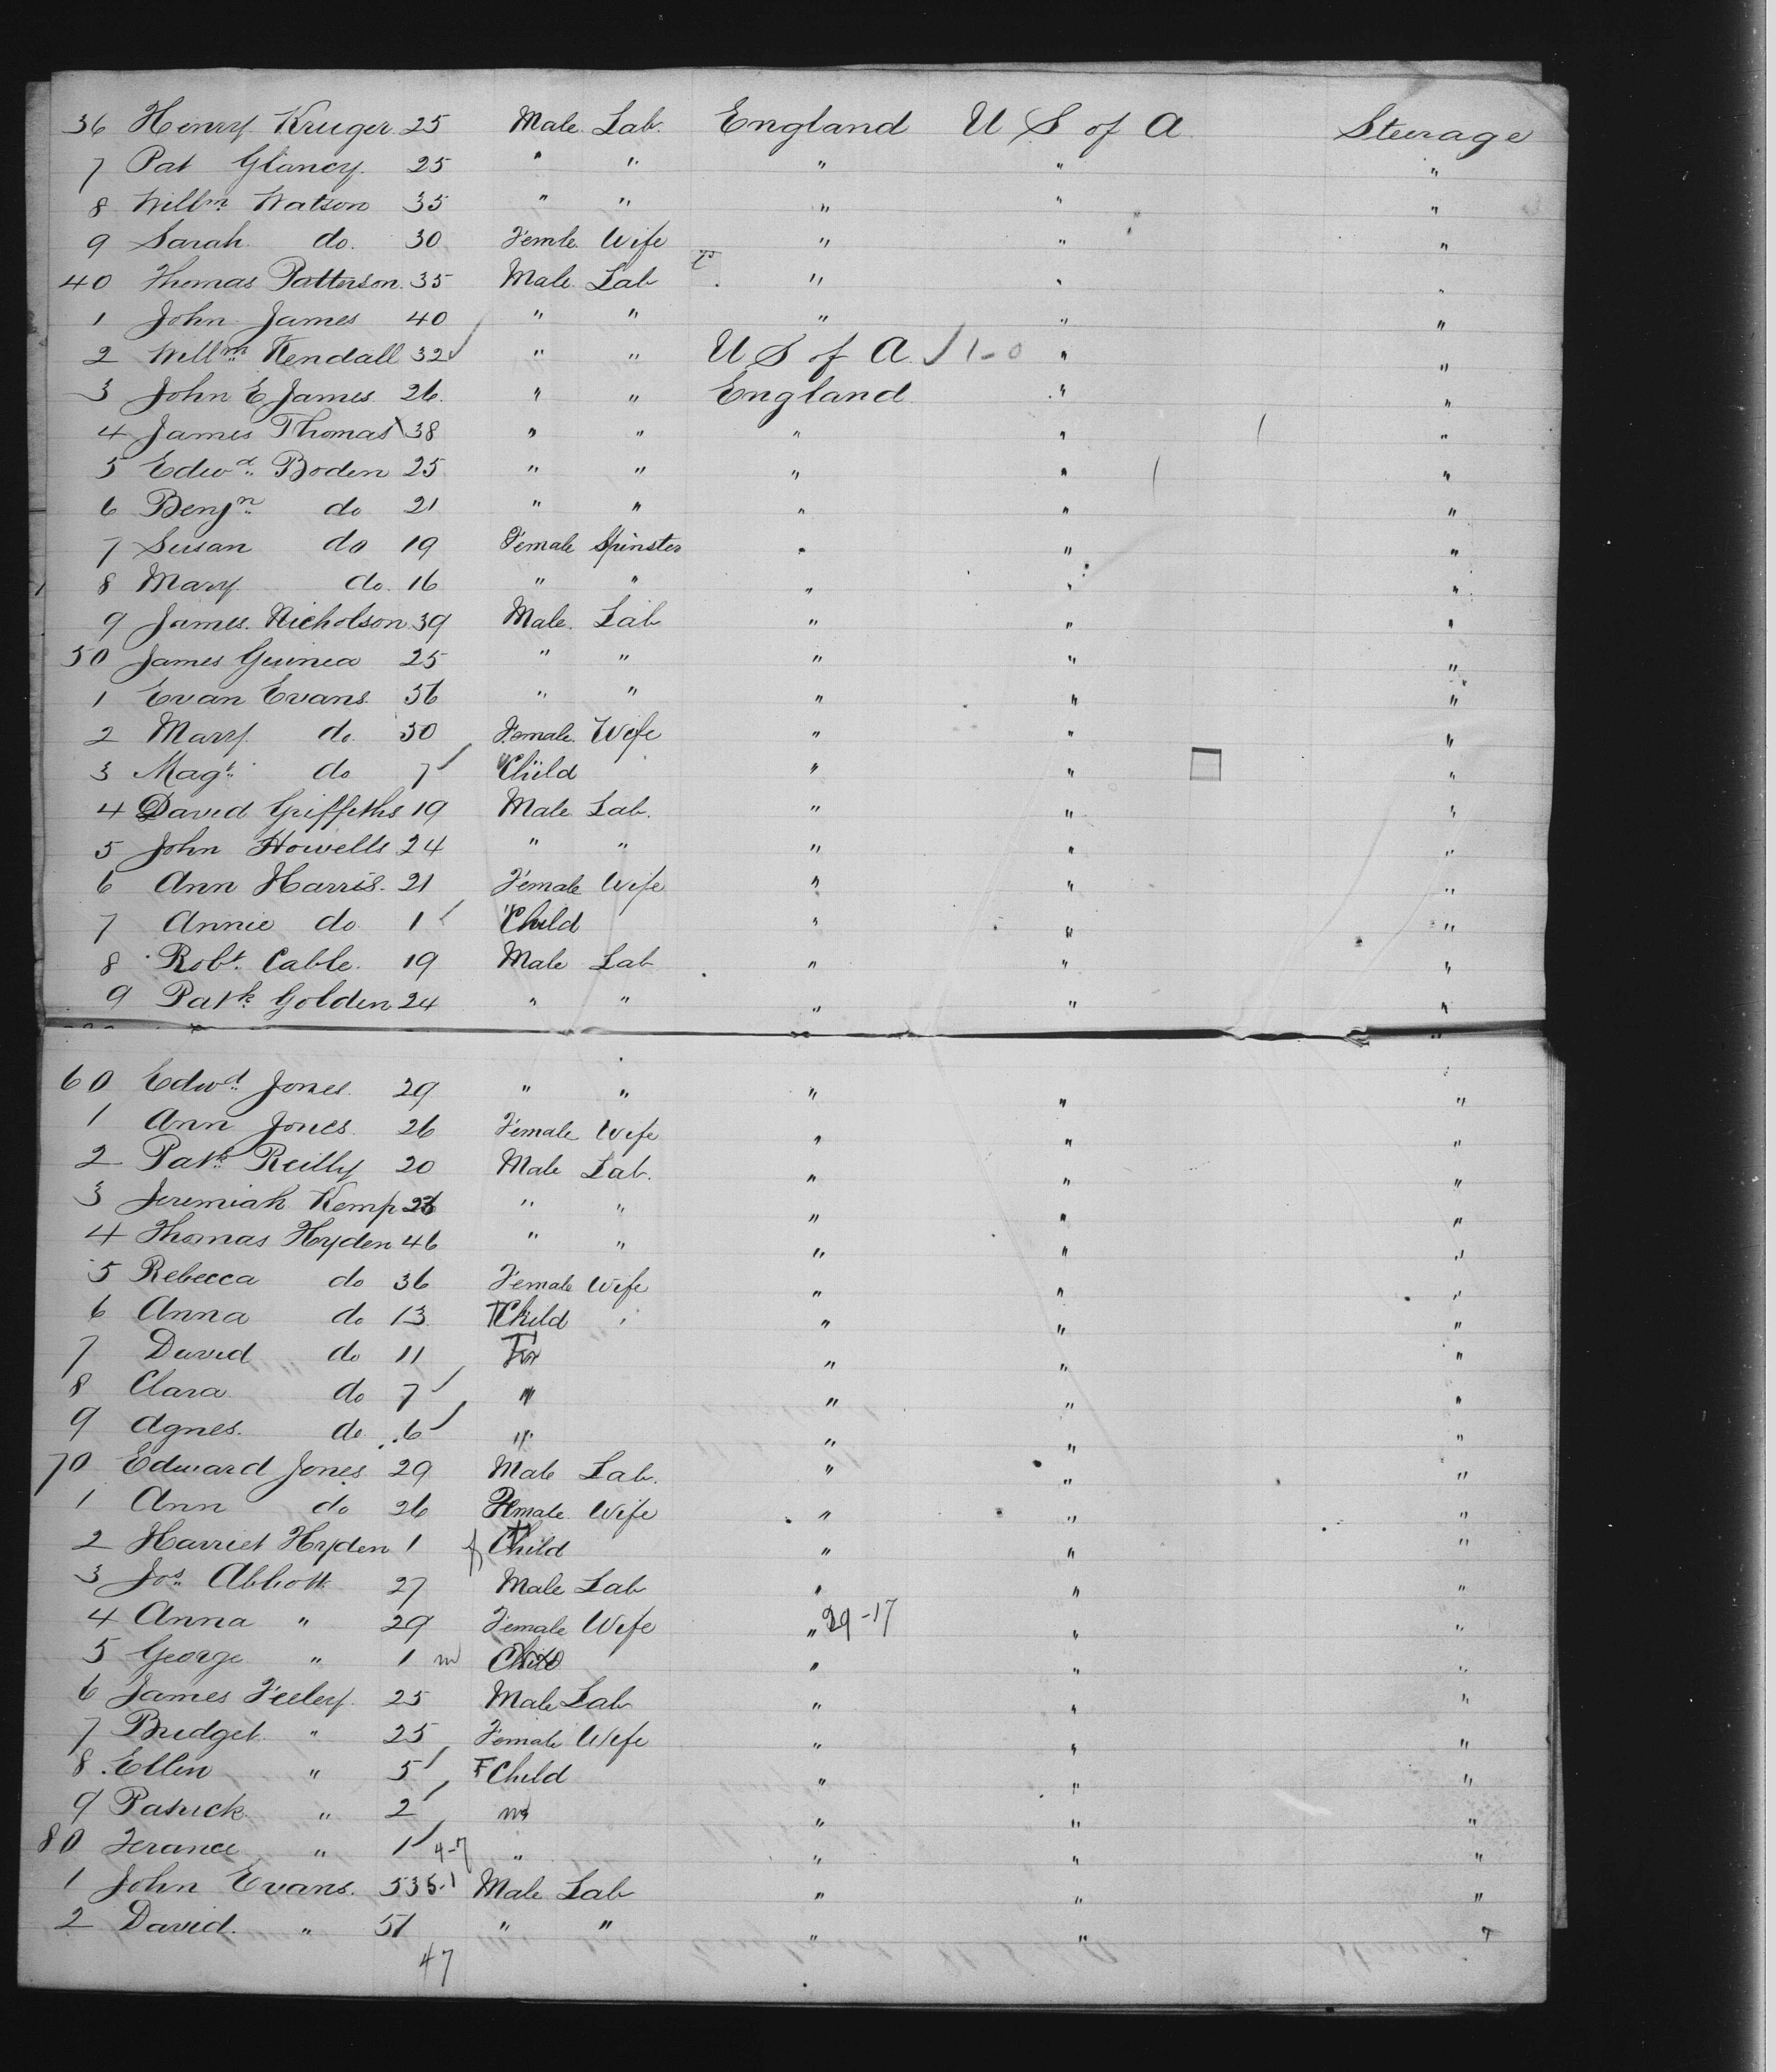 36 Henry Kruger 25 Male Lab. England U S of A Steerage
7 Pat Glancy. 25 " " " " "
8 Willm Watson 35 " " " " "
9 Sarah do. 30 Femle. Wife " " "
40 Thomas Patterson. 35 Male. Lab " " "
1 John James 40 " " " " "
2 Willm Kendall 32 " " U S of A. 1-0 " "
3 John E James 26. " " England " "
4 James Thomas 38 " " " " "
5 Edwd Boden 25 " " " " "
6 Benjn do 21 " " " " "
7 Susan do 19 Female Spinster " " "
8 Mary. do. 16 " " " " "
9 James. Nicholson 39 Male. Lab " " "
50 James Guinea 25 " " " " "
1 Evan Evans. 56 " " " " "
2 Mary. do. 50 Female. Wife " " "
3 Magt do 7 Child " " "
4 David Griffeths 19 Male Lab. " " "
5 John Howells 24 " " " " "
6 Ann Harris. 21 Female Wife " " "
7 Annie do. 1 Child " " "
8 Robt. Cable. 19 Male Lab " " "
9 Patk Golden 24 " " " " "
60 Edwd Jones. 29 " " " " "
1 Ann Jones. 26 Female Wife " " "
2 Patk Reilly 20 Male Lab. " " "
3 Jeremiah Kemp " " " " "
4 Thomas Hyden 46 " " " " "
5 Rebecca do 36 Female Wife " " "
6 Anna do 13 Child " " "
7 David do 11 " " "
8 Clara do 7 " " " "
9 Agnes. do 6 " " " "
70 Edward Jones 29 Male Lab. " " "
1 Ann do 26 Female Wife " " "
2 Harriet Hyden 1 f Child " " "
3 Jos Abbott 27 Male Lab " " "
4 Anna " 29 Female Wife " 29-17 " "
5 George " 1 m Child " " "
6 James Feeley. 25 Male Lab " " "
7 Bridget " 25 Female Wife " " "
8 Ellen " 5 F Child " " "
9 Patrick " 2 m " " "
80 Terance " 1 4-7 " " " "
1 John Evans. 53 Male Lab " " "
2 David. " 51 " " " " "
47